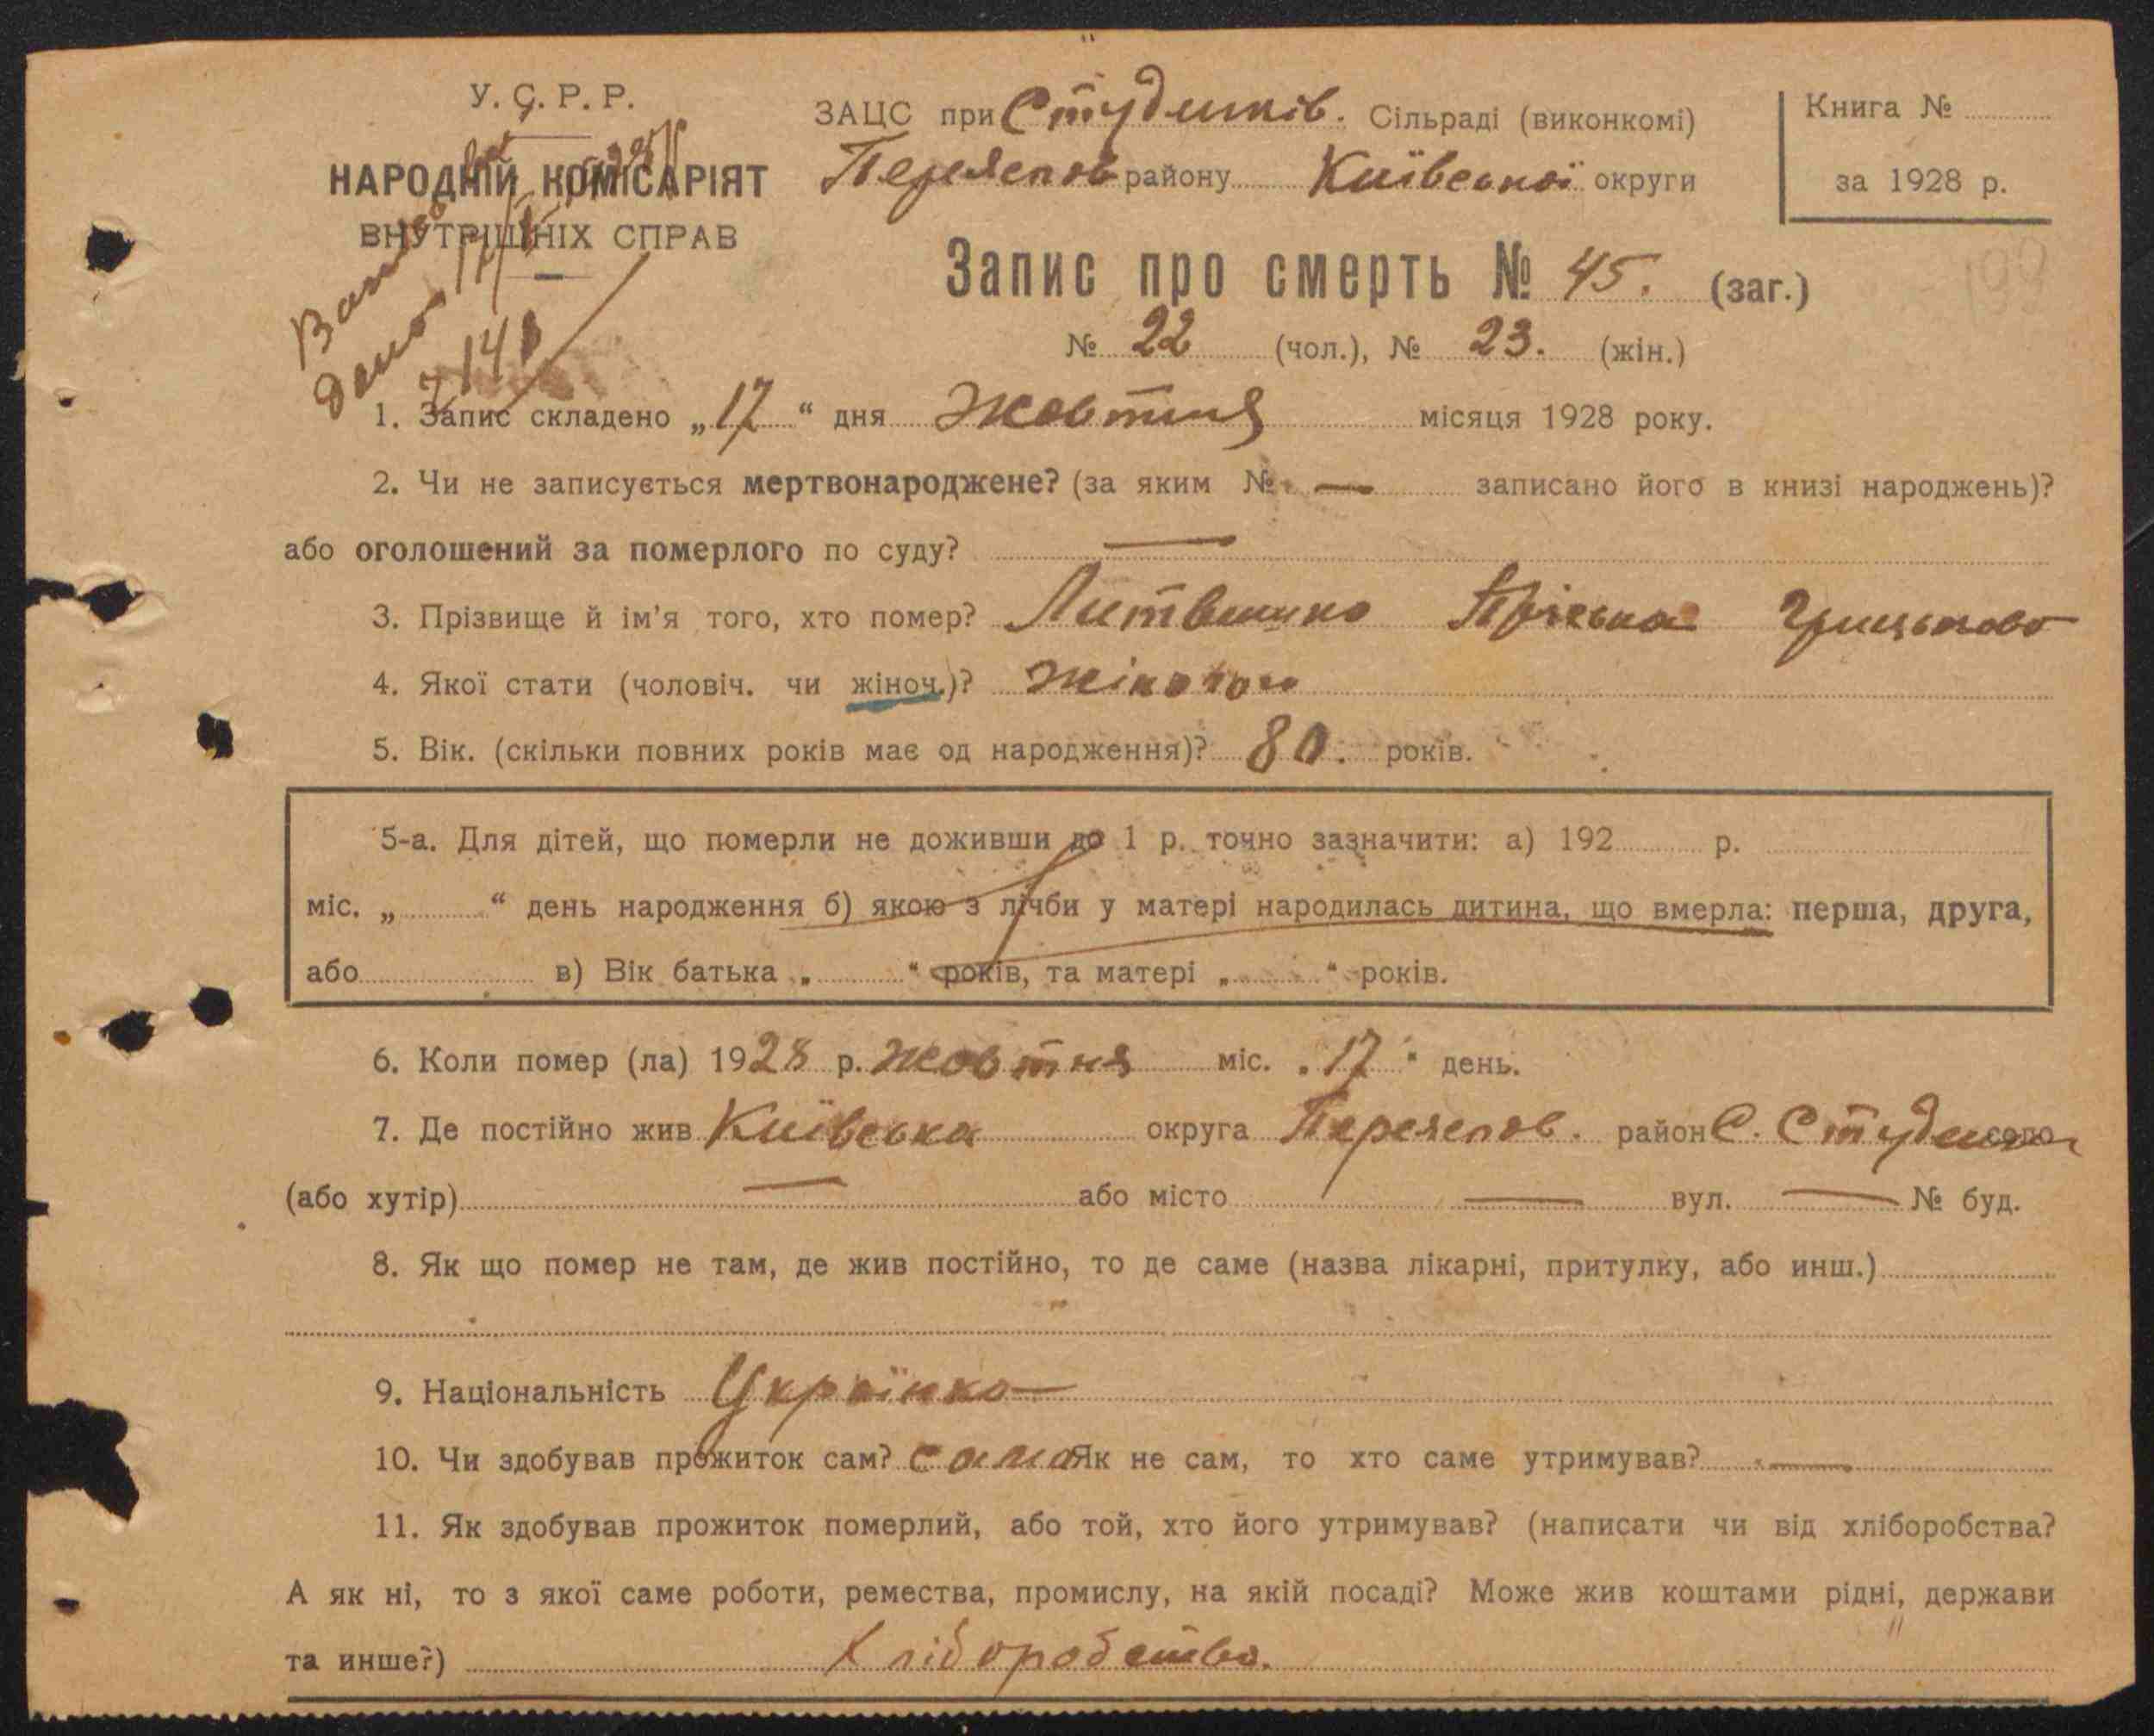 У.С.Р.Р.
НАРОДНІЙ КОМІСАРІЯТ
ВНУТРІШНІХ СПРАВ
ЗАЦС при Студеників. Сільраді (виконкомі)
Переяслов району Київської округи
Книга №
за 1928 р.
Запис про смерть № 45. (заг.)
№ 22 (чол.), № 23. (жін.)
1. Запис складено „17“ дня Жовтня місяця 1928 року.
2. Чи не записується мертвонароджене? (за яким № — записано його в книзі народжень)?
або оголошений за померлого по суду? —
3. Прізвище й ім'я того, хто помер? Пріська
4. Якої стати (чоловіч. чи жіноч.)? жіночої
5. Вік. (скільки повних років має од народження)? 80. років.
5-а. Для дітей, що померли не доживши до 1 р. точно зазначити: а) 192 р.
міс. „ “ день народження б) якою з лічби у матері народилась дитина, що вмерла: перша, друга,
або в) Вік батька „ “ років, та матері „ “ років.
6. Коли помер (ла) 1928 р. жовтня міс. „17“ день.
7. Де постійно жив Київська округа Переяслов. район С. село
(або хутір) — або місто — вул. — № буд.
8. Як що помер не там, де жив постійно, то де саме (назва лікарні, притулку, або инш.)
9. Національність Українка
10. Чи здобував прожиток сам? сама Як не сам, то хто саме утримував? —
11. Як здобував прожиток померлий, або той, хто його утримував? (написати чи від хліборобства?
А як ні, то з якої саме роботи, ремества, промислу, на якій посаді? Може жив коштами рідні, держави
та инше?) Хліборобство.